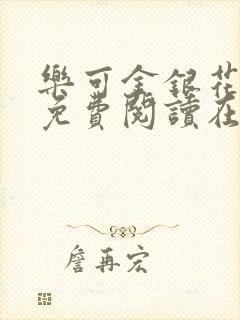 樂可金銀花
免費閱讀在
詹再宏